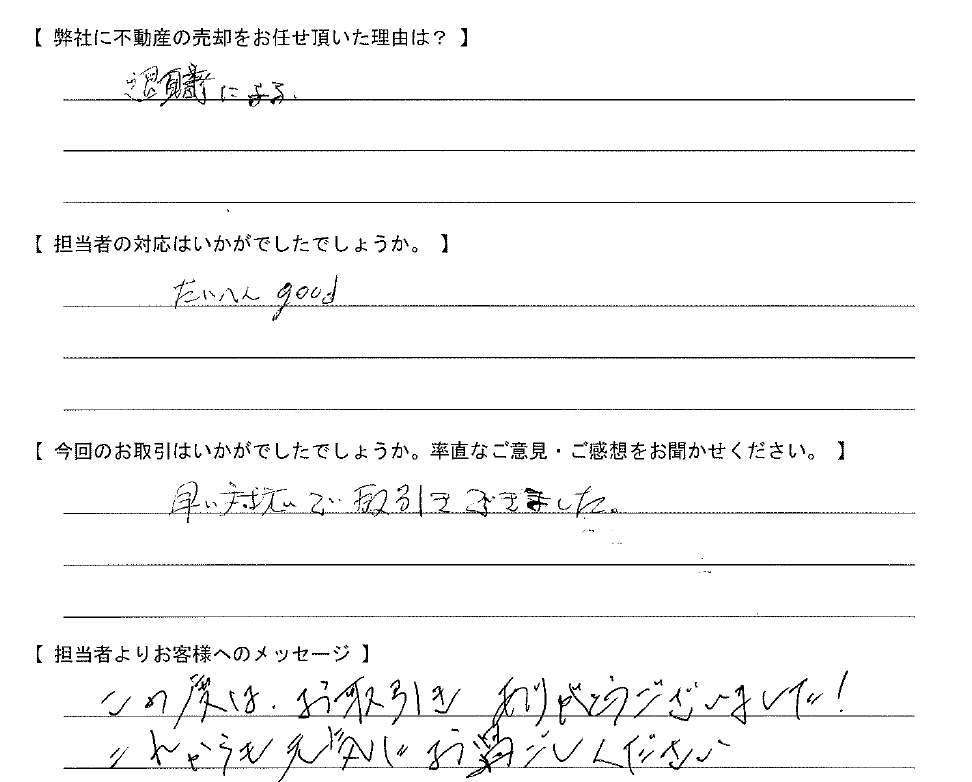 【 弊社に不動産の売却をお任せ頂いた理由は？ 】
による.
【 担当者の対応はいかがでしたでしょうか。 】
たいへん good
【 今回のお取引はいかがでしたでしょうか。率直なご意見・ご感想をお聞かせください。 】
早い対応で取引きできました。
【 担当者よりお客様へのメッセージ 】
この度は、お取引き ありがとうございました!
これからも元気にお過ごしください